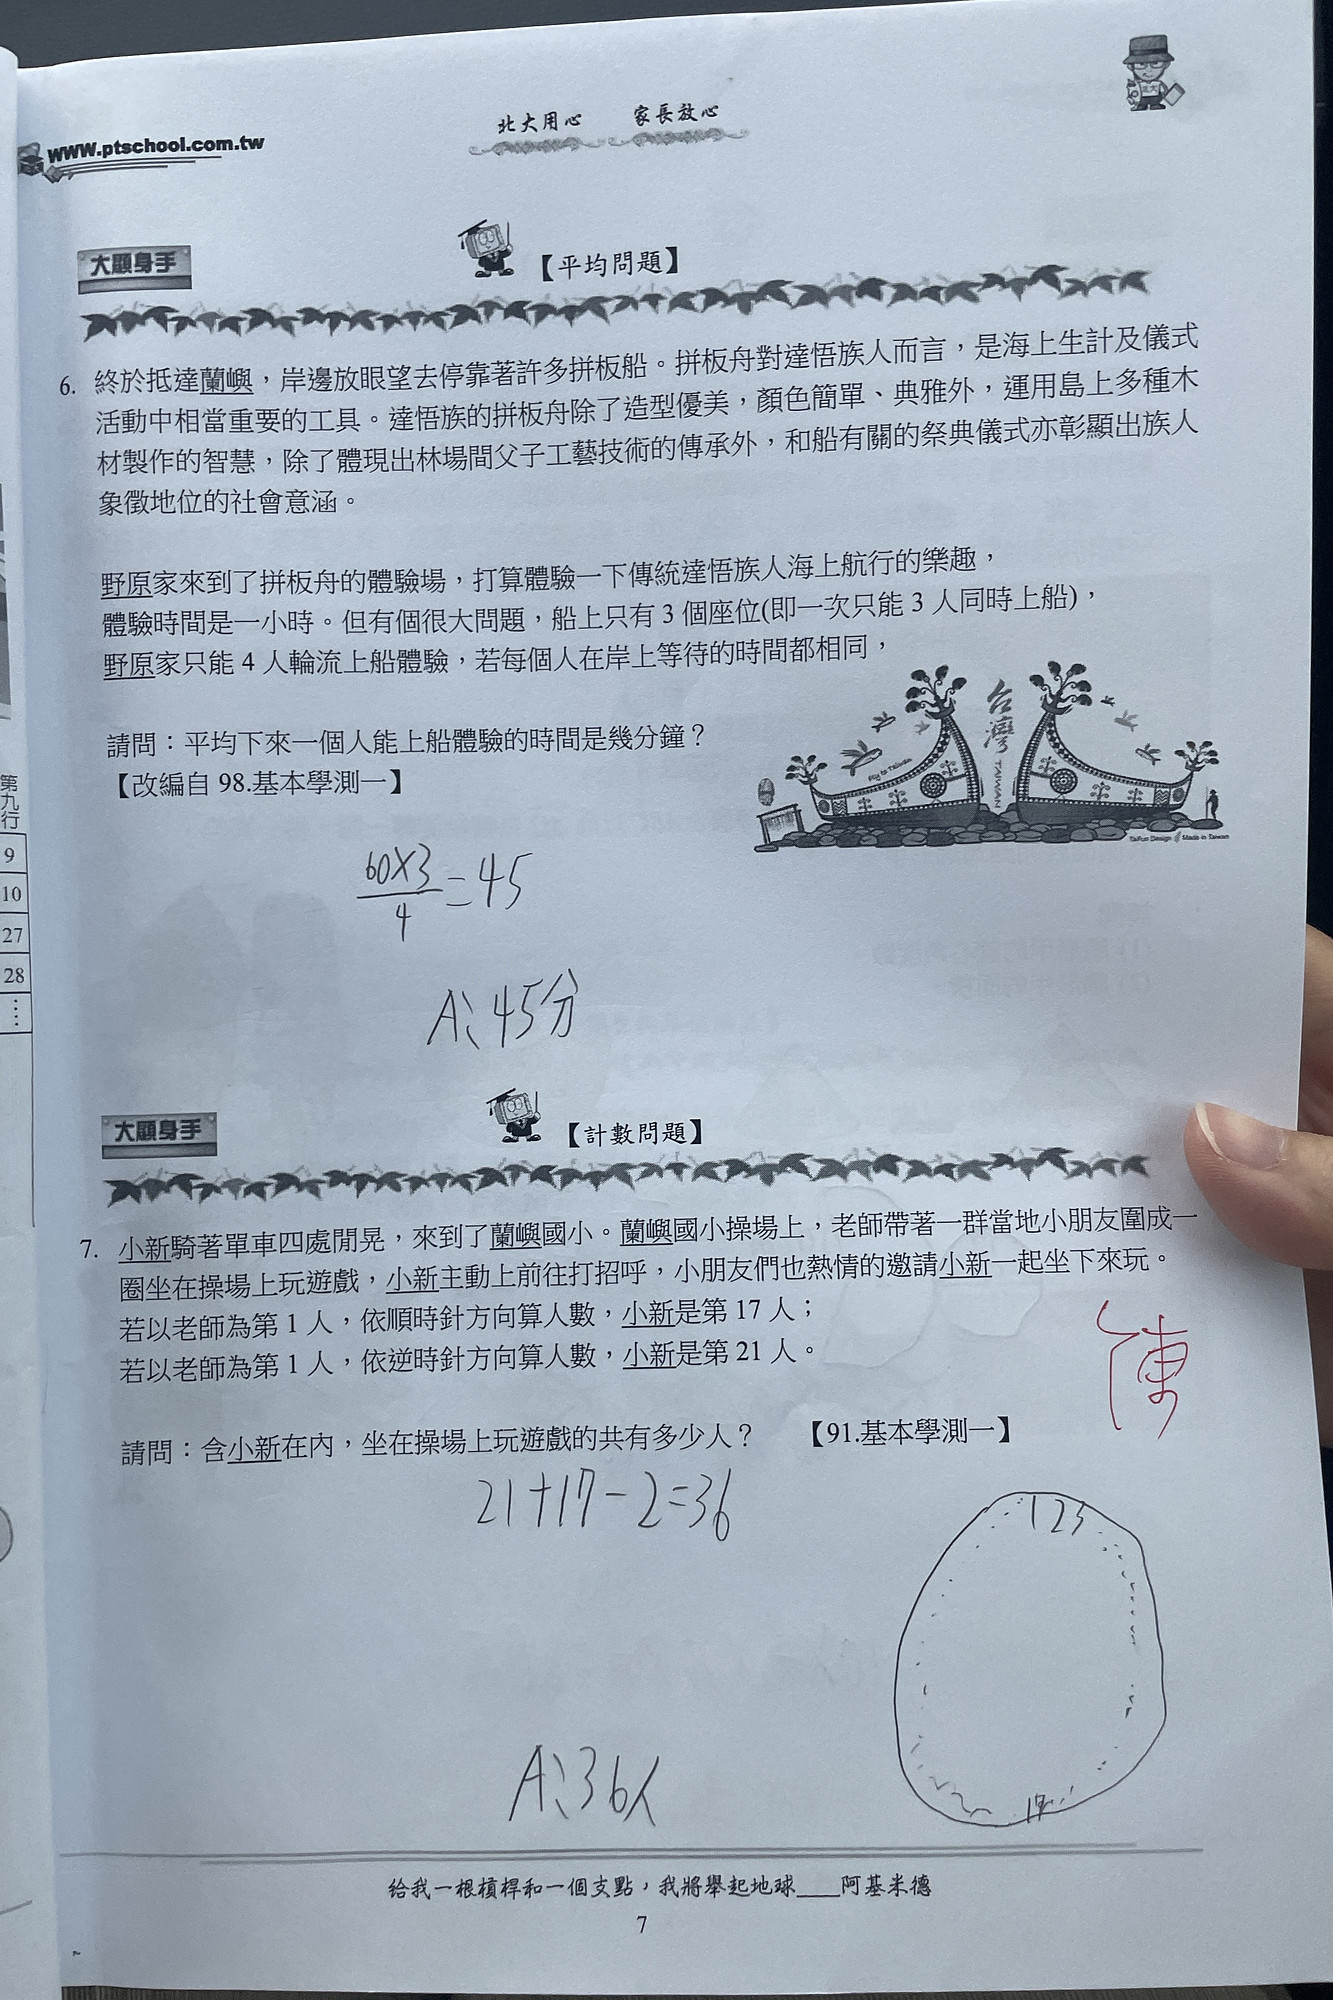 www.ptschool.com.tw
北大用心 家長放心
大顯身手
【平均問題】
6. 終於抵達蘭嶼，岸邊放眼望去停靠著許多拼板船。拼板舟對達悟族人而言，是海上生計及儀式
活動中相當重要的工具。達悟族的拼板舟除了造型優美，顏色簡單、典雅外，運用島上多種木
材製作的智慧，除了體現出林場間父子工藝技術的傳承外，和船有關的祭典儀式亦彰顯出族人
象徵地位的社會意涵。
野原家來到了拼板舟的體驗場，打算體驗一下傳統達悟族人海上航行的樂趣，
體驗時間是一小時。但有個很大問題，船上只有 3 個座位(即一次只能 3 人同時上船)，
野原家只能 4 人輪流上船體驗，若每個人在岸上等待的時間都相同，
請問：平均下來一個人能上船體驗的時間是幾分鐘？
【改編自 98.基本學測一】
台灣
TAIWAN
Fly to Taiwan
TaiFun Design
Made in Taiwan
第九行
9
10
27
28
⋮
60×3
4
=45
A:45分
大顯身手
【計數問題】
7. 小新騎著單車四處閒晃，來到了蘭嶼國小。蘭嶼國小操場上，老師帶著一群當地小朋友圍成一
圈坐在操場上玩遊戲，小新主動上前往打招呼，小朋友們也熱情的邀請小新一起坐下來玩。
若以老師為第 1 人，依順時針方向算人數，小新是第 17 人；
若以老師為第 1 人，依逆時針方向算人數，小新是第 21 人。
陳
請問：含小新在內，坐在操場上玩遊戲的共有多少人？ 【91.基本學測一】
21+17-2=36
1 2 3
17
A:36人
給我一根槓桿和一個支點，我將舉起地球___阿基米德
7